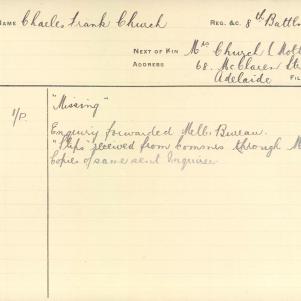 NAME Charles Frank Church REG. &C. 8th Battl
NEXT OF KIN Mrs Church (Mot
ADDRESS 68. McClaren St
Adelaide FIL
"Missing"
1/P. Enquiry forwarded Melb. Bureau.
"Slips" received from Comsnrs through M
Copies of same sent Inquirer